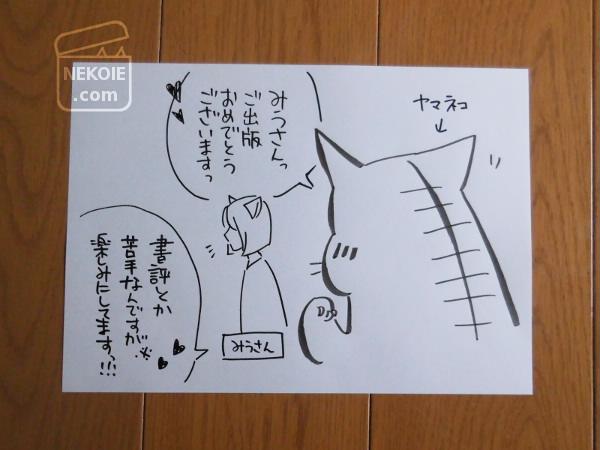 NEKOIE
.com
ヤマネコ
みうさんっ
ご出版
おめでとう
ございますっ
みうさん
書評とか
苦手なんですが※
楽しみにしてますっ!!!